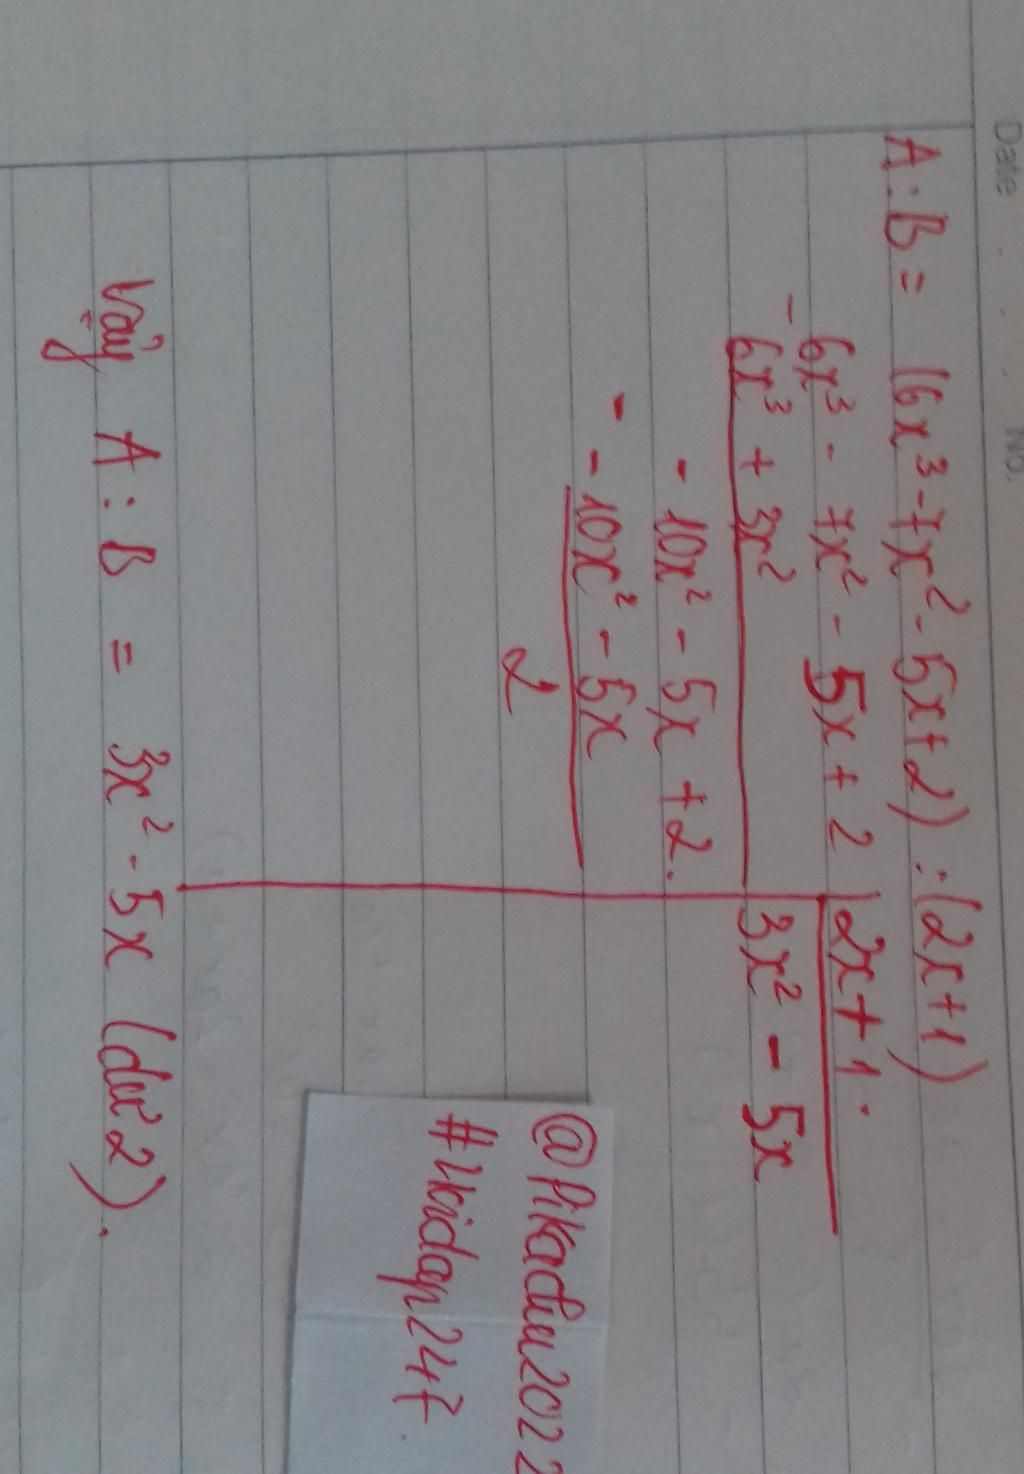 Date
No.
A : B = (6x³ - 7x² - 5x + 2) : (2x + 1)
6x³ - 7x² - 5x + 2 | 2x + 1.
- 6x³ + 3x² | 3x² - 5x
- 10x² - 5x + 2.
- - 10x² - 5x
2
Vậy A : B = 3x² - 5x (dư 2).
@Pikachu2022